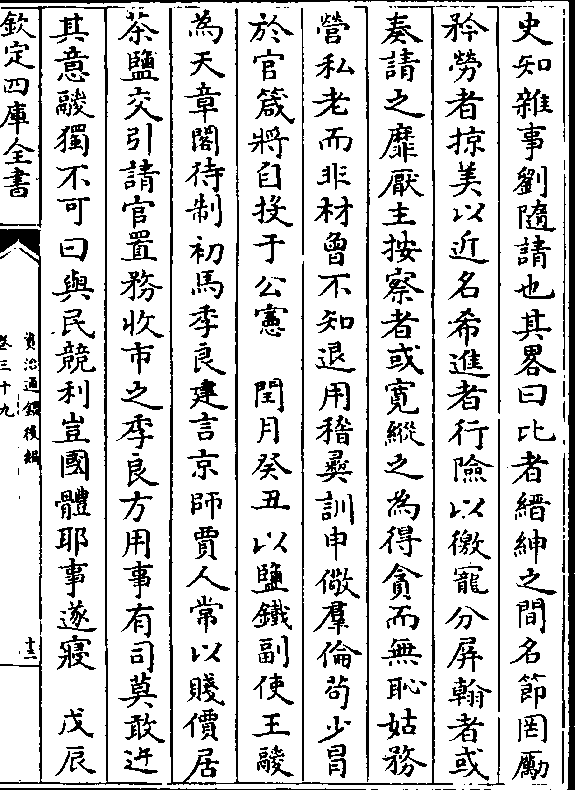 史知雜事劉隨請也其畧曰比者縉紳之間名節罔勵
矜勞者掠美以近名希進者行險以徼寵分屏翰者或
奏請之靡厭主按察者或寛縱之為得貪而無恥姑務
營私老而非材曾不知退用稽彞訓申儆羣倫茍少冒
於官箴將自投于公憲　閏月癸丑以鹽鐵副使王鬷
為天章閣待制初馬季良建言京師賈人常以賤價居
茶鹽交引請官置務收市之季良方用事有司莫敢迕
其意鬷獨不可曰與民競利豈國體耶事遂寢　戊辰
欽定四庫全書
資治通鑑後編
卷三十九
十三